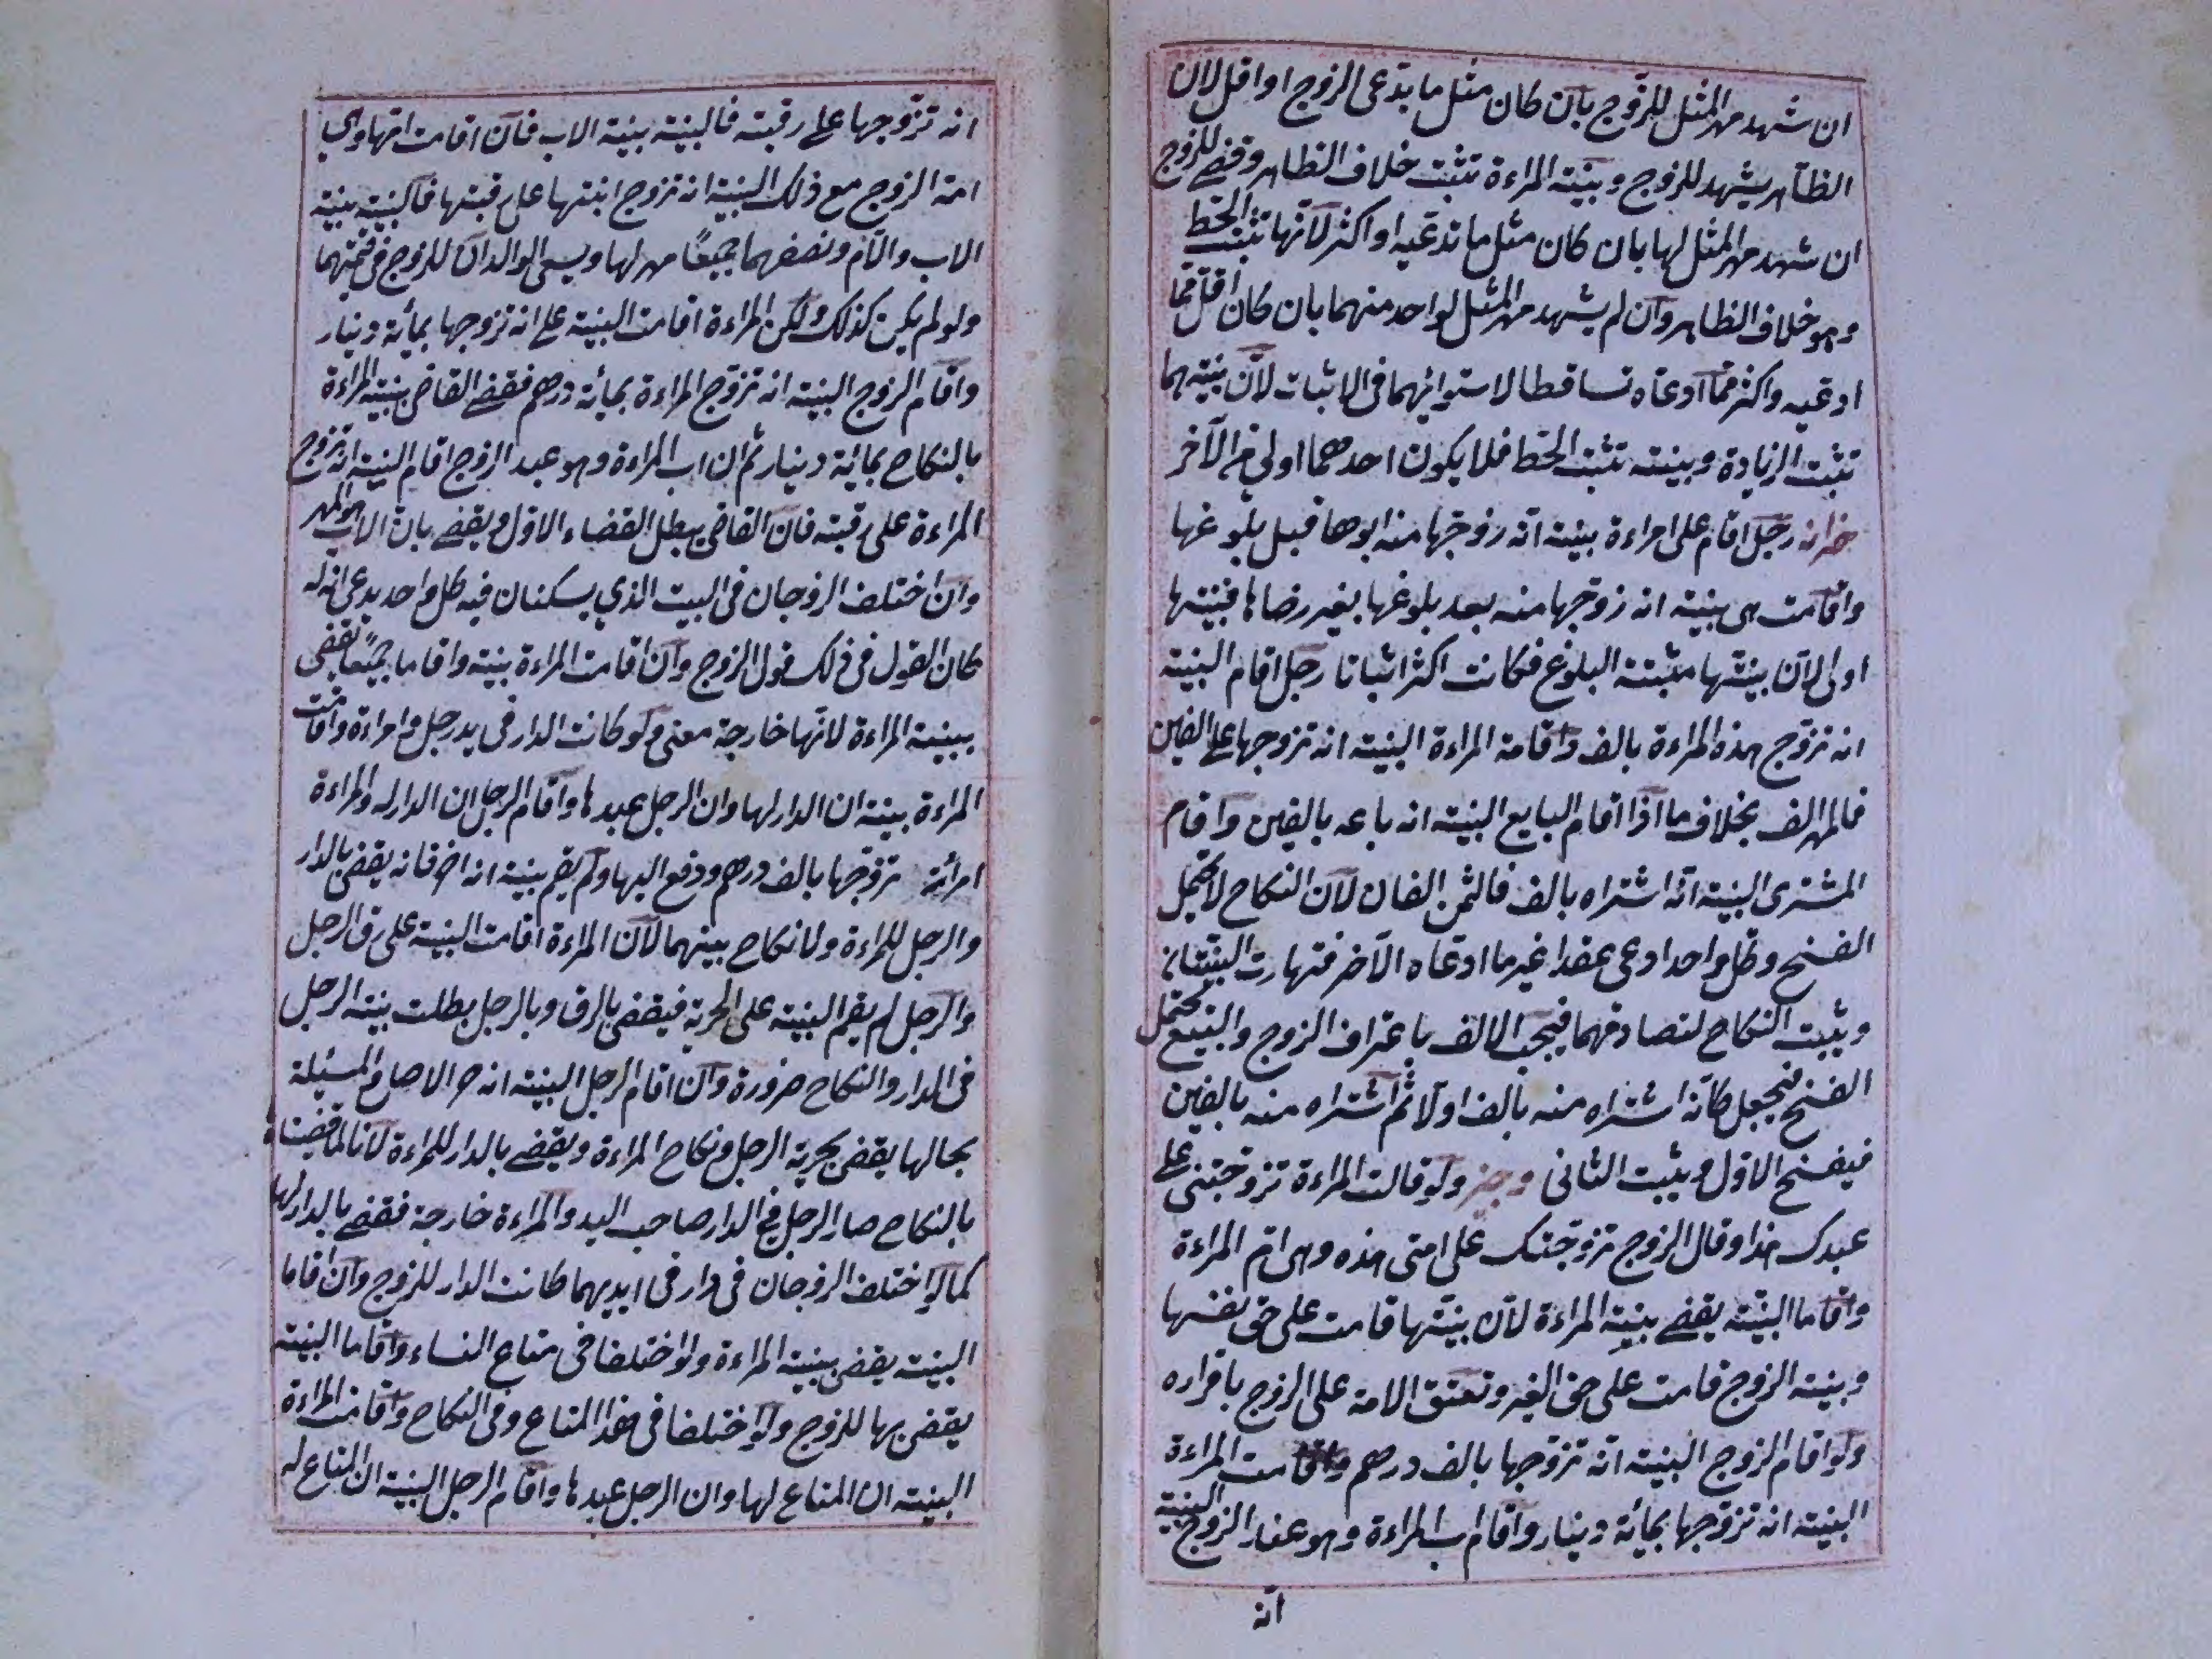 ان شهد مهر المثل للزوج بان كان مثل ما يدعى الزوج او اقل لان
الظاهر يشهد للزوج وبينة المراءة تثبت خلاف الظاهر وقضے للزوج
ان شهد مهر المثل لها بان كان مثل ما تدعيه او اكثر لانها تثبت الحط
وهو خلاف الظاهر وان لم يشهد مهر المثل لواحد منهما بان كان اقل مما
ادعيه واكثر مما ادعاه تساقطا لاستوائهما فى الاثبات لان بينتهما
تثبت الزيادة وبينته تثبت الحط فلا يكون احدهما اولى من الآخر
خزانه رجل اقام على امراءة بينة انه زوجها منه ابوها قبل بلوغها
واقامت هى بينة انه زوجها منه بعد بلوغها بغير رضاها فبينتها
اولى لان بينتها مثبتة البلوغ فكانت اكثر اثباتا رجل اقام البينة
انه تزوج هذه المراءة بالف واقامة المراءة البينة انه تزوجها على الفين
فالمهر الف بخلاف ما اذا اقام البايع البينة انه باعه بالفين واقام
المشترى البينة انه اشتراه بالف فالثمن الفان لان النكاح لا يحتمل
الفسخ وكل واحد ادعى عقدا غير ما ادعاه الآخر فتهارت البينتان
ويثبت النكاح لتصادقهما فيجب الالف باعتراف الزوج والبيع يحتمل
الفسخ فيجعل كانه اشتراه منه بالف اولا ثم اشتراه منه بالفين
فيفسخ الاول ويثبت الثانى وجيز ولو قالت المراءة تزوجتنى على
عبدك هذا وقال الزوج تزوجتك على امتى هذه وهى ام المراءة
واقاما البينة يقضے ببينة المراءة لان بينتها قامت على حق نفسها
وبينة الزوج قامت على حق الغير وتعتق الامة على الزوج باقراره
ولو اقام الزوج البينة انه تزوجها بالف درهم واقامت المراءة
البينة انه تزوجها بمائة دينار واقام اب المراءة وهو عبد الزوج البينة
انه
انه تزوجها على رقبته فالبينة بينة الاب فان اقامت امها وهى
امة الزوج مع ذلك البينة انه تزوج ابنتها على رقبتها فالبينة بينة
الاب والام ونصفهما جميعًا مهر لها ويسعى الوالدان للزوج فى قيمتهما
ولو لم يكن كذلك ولكن المراءة اقامت البينة على انه تزوجها بمائة دينار
واقام الزوج البينة انه تزوج المراءة بمائة درهم فقضے القاضى ببينة المراءة
بالنكاح بمائة دينار ثم ان اب المراءة وهو عبد الزوج اقام البينة انه تزوج
المراءة على رقبته فان القاضى يبطل القضاء الاول ويقضے بان الاب هو المهر
وان اختلف الزوجان فى البيت الذي يسكنان فيه كل واحد يدعى انه له
كان القول فى ذلك قول الزوج وان اقامت المراءة بينة واقاما جميعًا يقضى
ببينة المراءة لانها خارجة معنى ولو كانت الدار فى يد رجل وامراءة واقامت
المراءة بينة ان الدار لها وان الرجل عبدها واقام الرجل ان الدار له والمراءة
امرائه تزوجها بالف درهم ودفع اليها ولم يقم بينة انه حر فانه يقضى بالدار
والرجل للمراءة ولا نكاح بينهما لان المراءة اقامت البينة على رق الرجل
والرجل لم يقم البينة على الحرية فيقضى بالرق وبالرجل بطلت بينة الرجل
فى الدار والنكاح ضرورة وان اقام الرجل البينة انه حر الاصل والمسئلة
بحالها يقضى بحرية الرجل ونكاح المراءة ويقضے بالدار للمراءة لانا لما قضينا
بالنكاح صار الرجل فى الدار صاحب اليد والمراءة خارجة فقضے بالدار لها
كما لو اختلف الزوجان فى دار فى ايديهما كانت الدار للزوج وان اقاما
البينة يقضى ببينة المراءة ولو اختلفا فى متاع النساء واقاما البينة
يقضى بها للزوج ولو اختلفا فى هذا المتاع وفى النكاح واقامت المراءة
البينة ان المتاع لها وان الرجل عبدها واقام الرجل البينة ان المتاع له